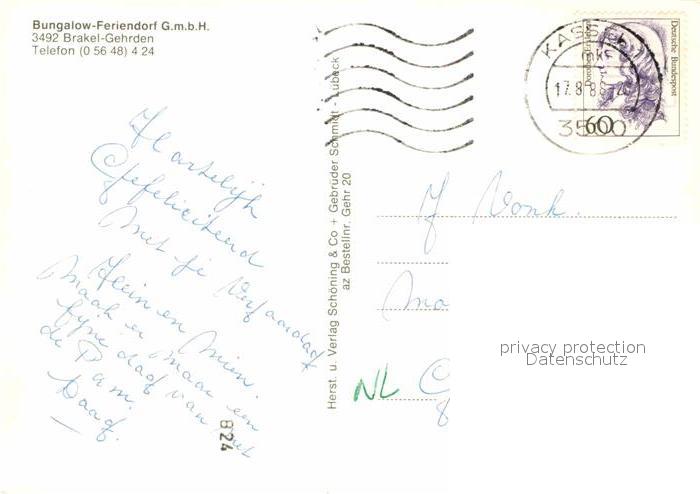 Bungalow-Feriendorf G.m.b.H.
3492 Brakel-Gehrden
Telefon (0 56 48) 4 24
Hartelijk
Gefeliciteerd
met je Verjaardag
Hein en Mien.
maak er maar een
fijne dag van met
de Pam.
Daag.
824
Herst. u. Verlag Schöning & Co + Gebrüder Schmidt - Lübeck
az Bestellnr. Gehr 20
KASSEL
17.8.8
3500
60
Deutsche Bundespost
J Vonk.
NL
privacy protection
Datenschutz